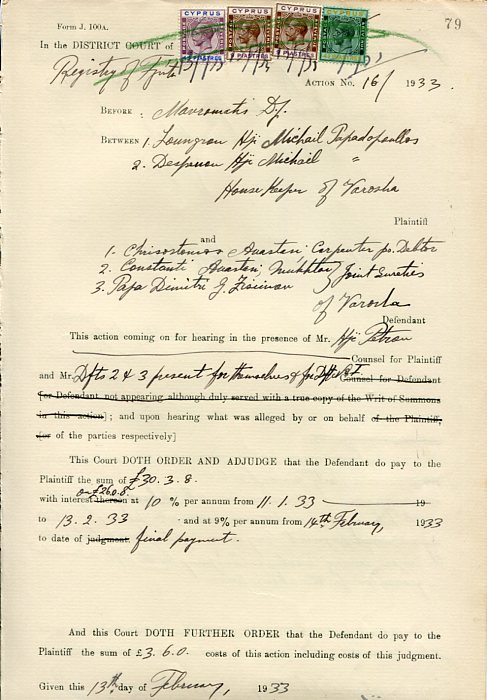 Form J. 100A.
79
CYPRUS CYPRUS CYPRUS CYPRUS
In the DISTRICT COURT of
Registry of
ACTION No. 16/1933.
BEFORE: Mavromatis D.J.
BETWEEN 1. Hji Michail Papadopoullos
2. Despinou Hji Michail "
House Keeper of Varosha
Plaintiff
and
1. Chrisostomos Anastasi Carpenter po. Debtor
2. Constanti Anastasi, Mukhtar } Joint Sureties
3. Papa Dimitri J.
of Varosha
Defendant
This action coming on for hearing in the presence of Mr. Hji Petrou
Counsel for Plaintiff
and Mr. Dfts 2 & 3 present for themselves & for Dft No 1 Counsel for Defendant
[or Defendant not appearing although duly served with a true copy of the Writ of Summons
in this action]; and upon hearing what was alleged by or on behalf of the Plaintiff,
[or of the parties respectively]
This Court DOTH ORDER AND ADJUDGE that the Defendant do pay to the
Plaintiff the sum of £30. 3. 8.
on £26.0.8.
with interest thereon at 10 % per annum from 11. 1. 33 19
to 13. 2. 33 and at 9% per annum from 14th February, 1933
to date of judgment. final payment.
And this Court DOTH FURTHER ORDER that the Defendant do pay to the
Plaintiff the sum of £3. 6. 0. costs of this action including costs of this judgment.
Given this 13th day of February, 1933